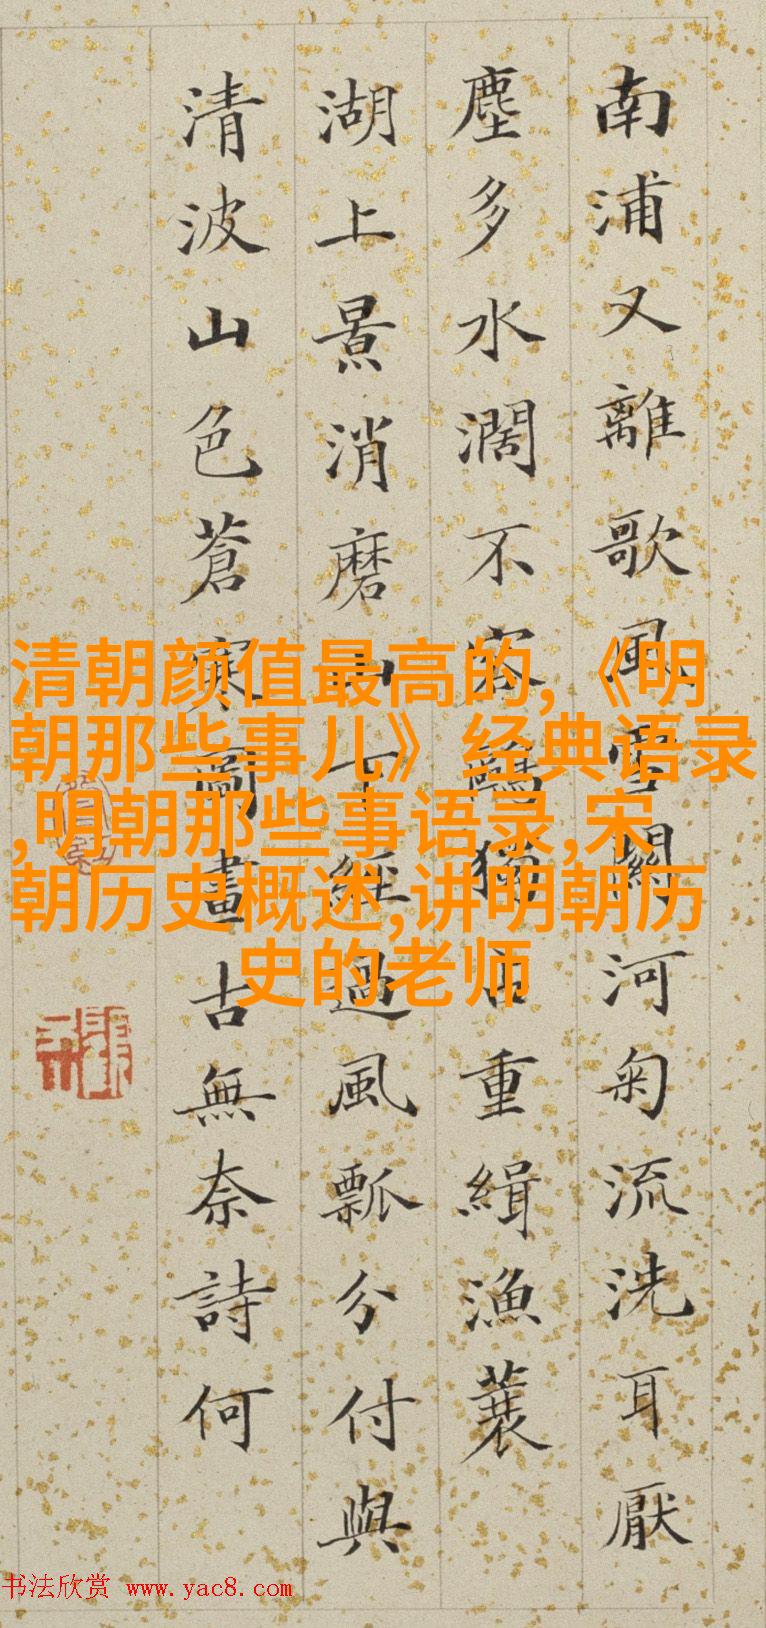 南浦又離歌風雪關河匊流洗耳厭
塵多水濶不容鷗重緝漁蓑
湖上景消磨山下經過風瓢分付與
清波山色蒼寒圖畫古無奈詩何
清朝颜值最高的,《明
朝那些事儿》经典语录
,明朝那些事语录,宋
朝历史概述,讲明朝历
史的老师
书法欣赏 www.yac8.com